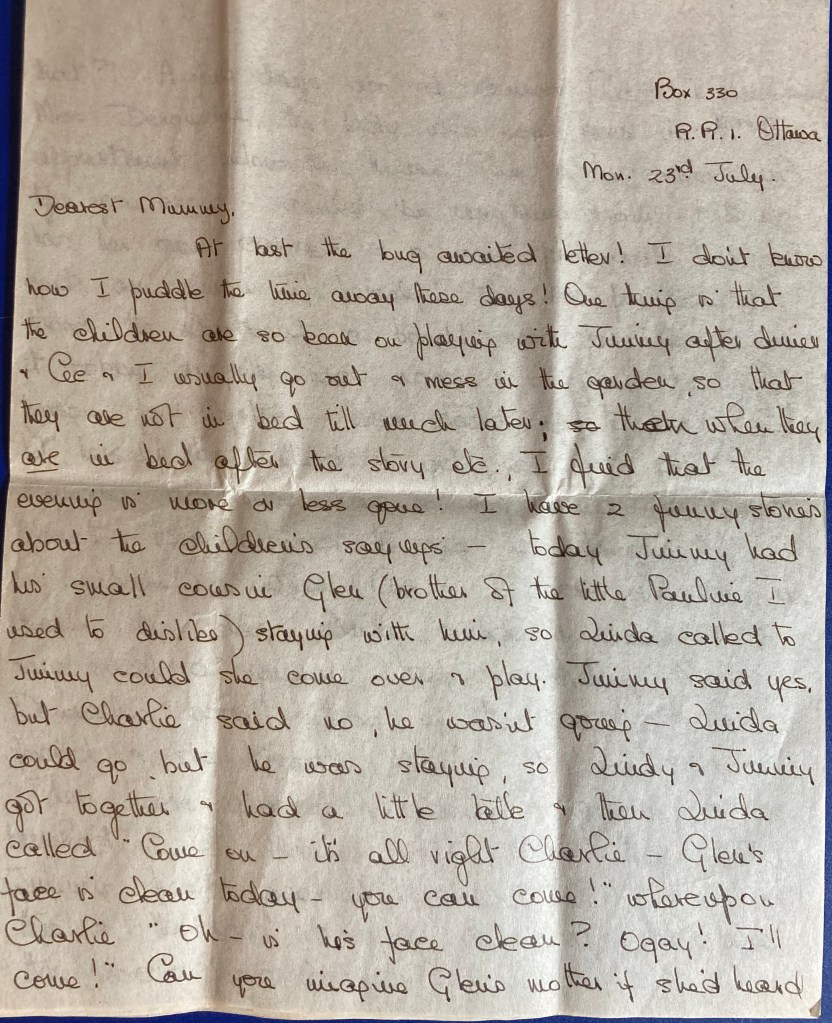 Box 330
R.R.1. Ottawa
Mon. 23rd July.
Dearest Mummy,
At last the long awaited letter! I don't know
how I puddle the time away these days! One thing is that
the children are so keen on playing with Jimmy after dinner
& Cee & I usually go out & mess in the garden, so that
they are not in bed till much later; so then when they
are in bed after the story etc., I find that the
evening is more or less gone! I have 2 funny stories
about the children's sayings – today Jimmy had
his small cousin Glen (brother of the little Pauline I
used to dislike) staying with him, so Linda called to
Jimmy could she come over & play. Jimmy said yes,
but Charlie said no, he wasn't going – Linda
could go but he was staying, so Lindy & Jimmy
got together & had a little talk & then Linda
called "Come on – it's all right Charlie – Glen's
face is clean today – you can come!" whereupon
Charlie "Oh – is he's face clean? Ogay! I'll
come!" Can you imagine Glen's mother if she'd heard